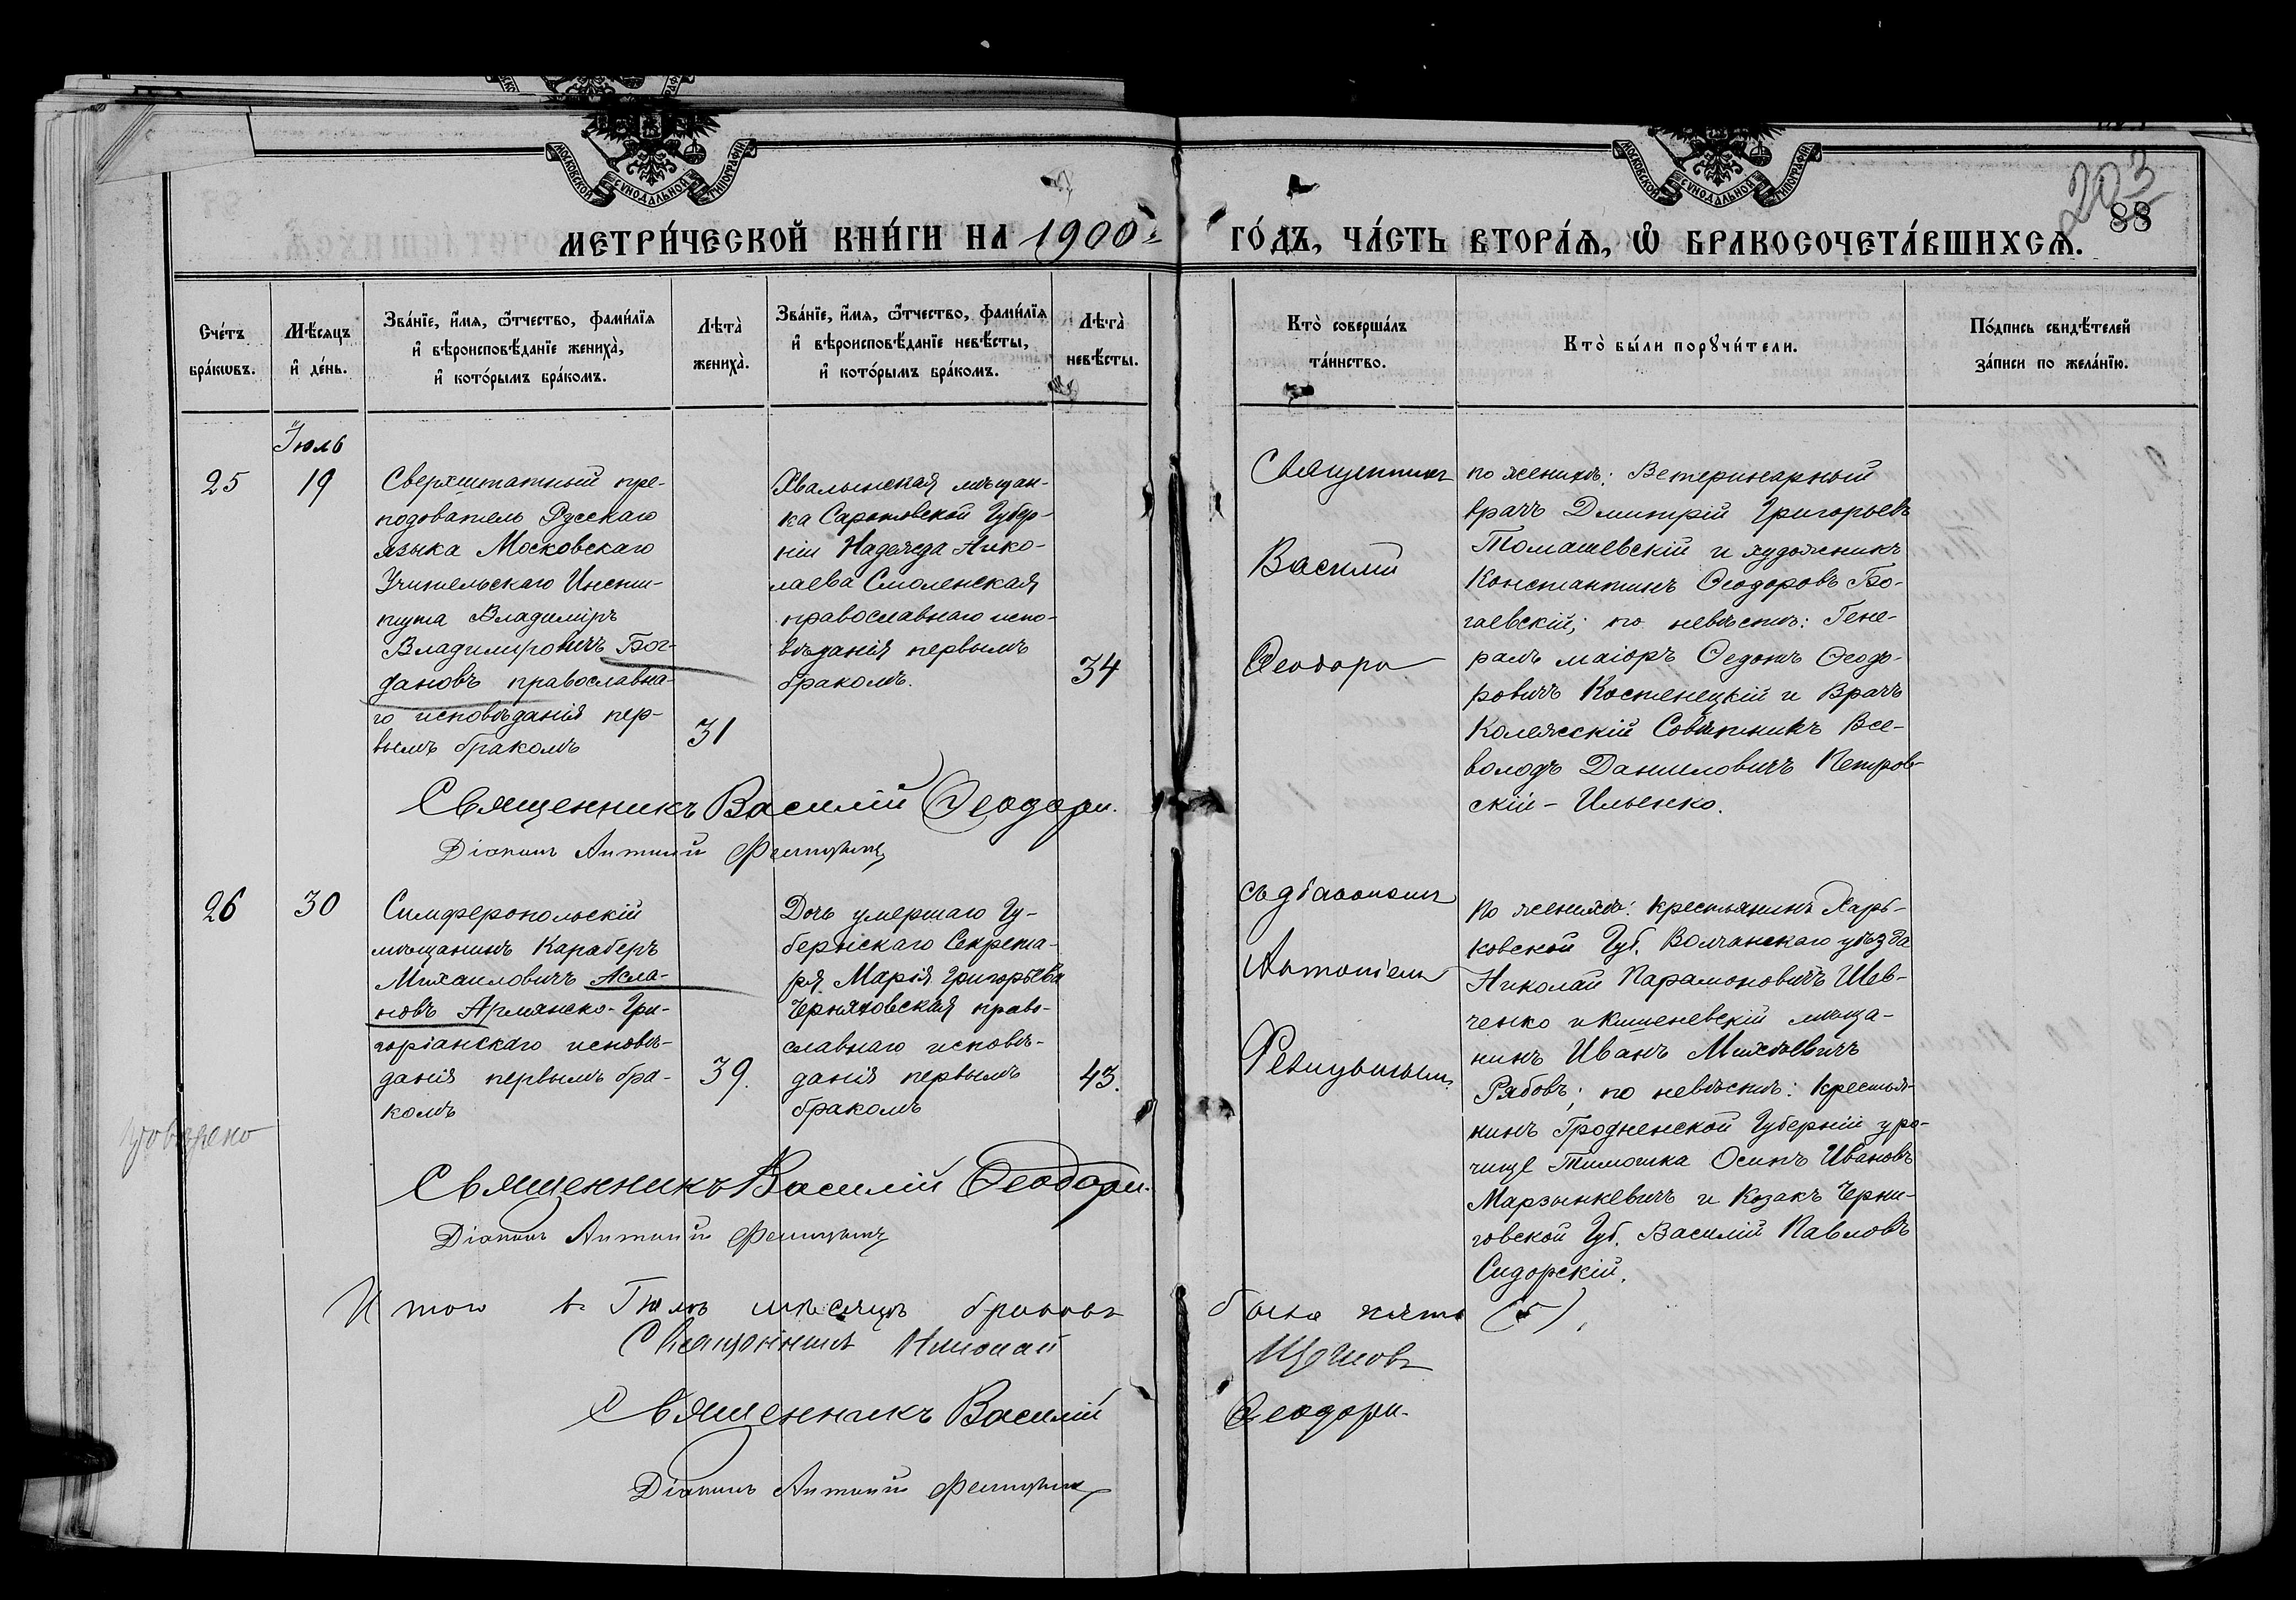 МОСКОВСКОЙ СѴНОДАЛЬНОЙ ТИПОГРАФІИ
МОСКОВСКОЙ СѴНОДАЛЬНОЙ ТИПОГРАФІИ
203
88
МЕТРИ́ЧЕСКОЙ КНИ́ГИ НА 1900 ГО́ДЪ, ЧА́СТЬ ВТОРА́Ѧ, Ѡ҆ БРАКОСОЧЕТА́ВШИХСѦ.
Сче́тъ
бра́кѡвъ.
Мѣ́сѧцъ
и҆ де́нь.
Зва́нїе, и҆́мѧ, ѻ҆́тчество, фами́лїѧ
и҆ вѣроисповѣ́данїе жениха̀,
и҆ кото́рымъ бра́комъ.
Лѣта̀
жениха̀.
Зва́нїе, и҆́мѧ, ѻ҆́тчество, фами́лїѧ
и҆ вѣроисповѣ́данїе невѣ́сты,
и҆ кото́рымъ бра́комъ.
Лѣта̀
невѣ́сты.
Кто̀ соверша́лъ
та́инство.
Кто̀ бы́ли порꙋчи́тели.
По́дпись свидѣ́телей
за́писи по жела́нїю.
Іюль
25
19
Сверхштатный пре-
подователь Русскаго
языка Московскаго
Учительскаго Инсти-
тута Владиміръ
Владимировичъ Бог-
дановъ православна-
го исповѣданія пер-
вымъ бракомъ
31
Хвалынская мѣщан-
ка Саратовской Губер-
ніи Надежда Нико-
лаева Смоленская
православнаго испо-
вѣданія первымъ
бракомъ.
34
Священникъ
Василий
Ѳеодори
по женихѣ: Ветеринарный
врачъ Дмитрій Григорьевъ
Томашевскій и художникъ
Константинъ Ѳеодоровъ Бо-
гаевскій; по невѣстѣ: Гене-
ралъ маіоръ Ѳедотъ Ѳеодо-
ровичъ Костенецкій и Врачъ
Колежскій Совѣтникъ Все-
володъ Даниловичъ Петров-
скій - Ильенко.
Священникъ Василій Ѳеодори.
Діаконъ Антоній
26
30
Симферопольскій
мѣщанинъ Карабетъ
Михаиловичъ Асла-
новъ Армянско-Гри-
горіанскаго исповѣ-
данія первымъ бра-
комъ
39.
Дочь умершаго Гу-
бернскаго Секрета-
ря Марія Григорьева
Черняховская право-
славнаго исповѣ-
данія первымъ
бракомъ
43.
съ діакономъ
Антоніемъ
По женихѣ: крестьянинъ Харь-
ковской Губ. Волчанскаго уѣзда
Николай Парамоновичъ Шев-
ченко и Кишеневскій мѣща-
нинъ Иванъ Михѣевичъ
Рябовъ; по невѣстѣ: крестья-
нинъ Гродненской Губерніи уро-
чище Тимошка Осипъ Ивановъ
Марзынкевичъ и Козакъ Черни-
говской Губ. Василій Павловъ
Сидорскій.
Священникъ Василій Ѳеодори.
Діаконъ Антоній
Итого въ Іюлѣ мѣсяцѣ браковъ было пять (5).
Священникъ Николай
Священникъ Василій Ѳеодори.
Діаконъ Антоній